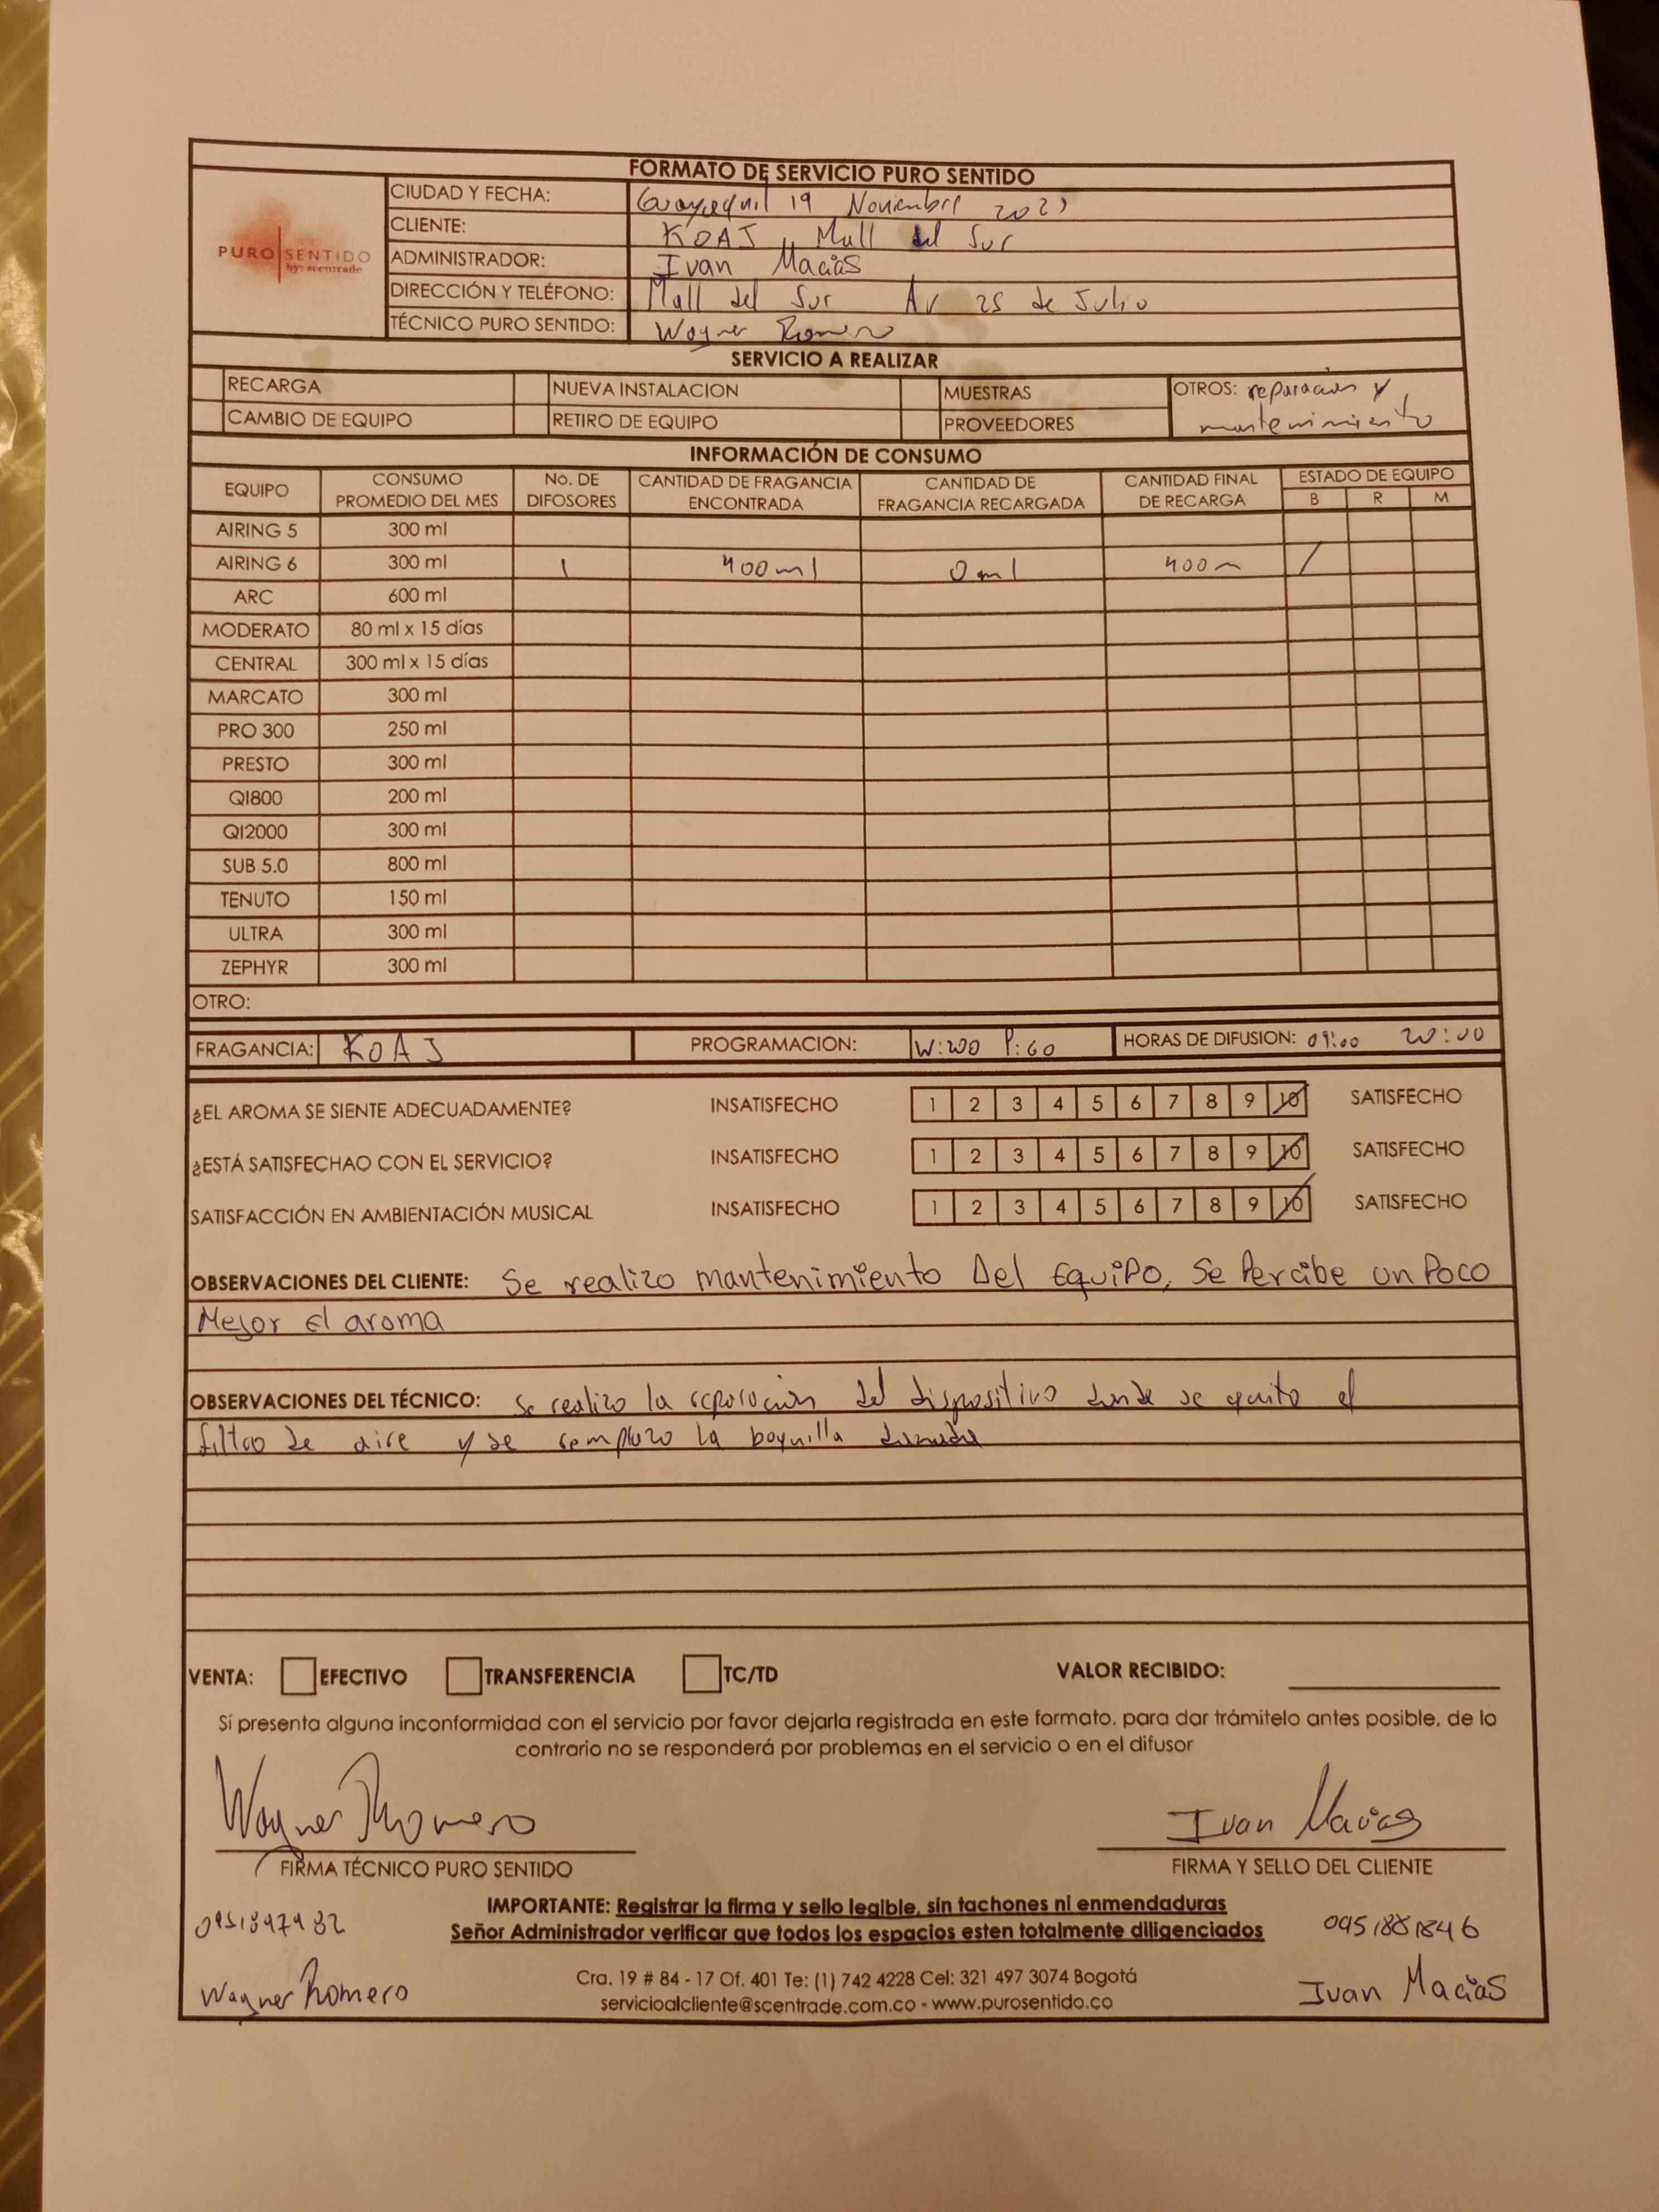 FORMATO DE SERVICIO PURO SENTIDO
PURO SENTIDO
by: scentrade
CIUDAD Y FECHA: Guayaquil 19 Noviembre
CLIENTE: KOAJ Mall del Sur
ADMINISTRADOR: Ivan Macias
DIRECCIÓN Y TELÉFONO: Mall del Sur Av 25 de Julio
TÉCNICO PURO SENTIDO: Wagner Romero
SERVICIO A REALIZAR
RECARGA NUEVA INSTALACION MUESTRAS OTROS: reparacion y
CAMBIO DE EQUIPO RETIRO DE EQUIPO PROVEEDORES mantenimiento
INFORMACIÓN DE CONSUMO
EQUIPO CONSUMO PROMEDIO DEL MES No. DE DIFOSORES CANTIDAD DE FRAGANCIA ENCONTRADA CANTIDAD DE FRAGANCIA RECARGADA CANTIDAD FINAL DE RECARGA ESTADO DE EQUIPO
B R M
AIRING 5 300 ml
AIRING 6 300 ml 1 400ml 0ml 400m /
ARC 600 ml
MODERATO 80 ml x 15 días
CENTRAL 300 ml x 15 días
MARCATO 300 ml
PRO 300 250 ml
PRESTO 300 ml
QI800 200 ml
QI2000 300 ml
SUB 5.0 800 ml
TENUTO 150 ml
ULTRA 300 ml
ZEPHYR 300 ml
OTRO:
FRAGANCIA: KOAJ PROGRAMACION: W:200 P:60 HORAS DE DIFUSION: 09:00 20:00
¿EL AROMA SE SIENTE ADECUADAMENTE? INSATISFECHO 1 2 3 4 5 6 7 8 9 10 SATISFECHO
¿ESTÁ SATISFECHAO CON EL SERVICIO? INSATISFECHO 1 2 3 4 5 6 7 8 9 10 SATISFECHO
SATISFACCIÓN EN AMBIENTACIÓN MUSICAL INSATISFECHO 1 2 3 4 5 6 7 8 9 10 SATISFECHO
OBSERVACIONES DEL CLIENTE: Se realizo mantenimiento Del Equipo, Se Percibe un Poco
Mejor El aroma
OBSERVACIONES DEL TÉCNICO: Se realizo la reparacion del dispositivo donde se quito el
filtro de aire y se remplazo la boquilla
VENTA: EFECTIVO TRANSFERENCIA TC/TD VALOR RECIBIDO:
Sí presenta alguna inconformidad con el servicio por favor dejarla registrada en este formato, para dar trámitelo antes posible, de lo
contrario no se responderá por problemas en el servicio o en el difusor
Wagner Romero Ivan Macias
FIRMA TÉCNICO PURO SENTIDO FIRMA Y SELLO DEL CLIENTE
IMPORTANTE: Registrar la firma y sello legible, sin tachones ni enmendaduras
Señor Administrador verificar que todos los espacios esten totalmente diligenciados
0951881846
Cra. 19 # 84 - 17 Of. 401 Te: (1) 742 4228 Cel: 321 497 3074 Bogotá
Wagner Romero Ivan Macias
servicioalcliente@scentrade.com.co - www.purosentido.co